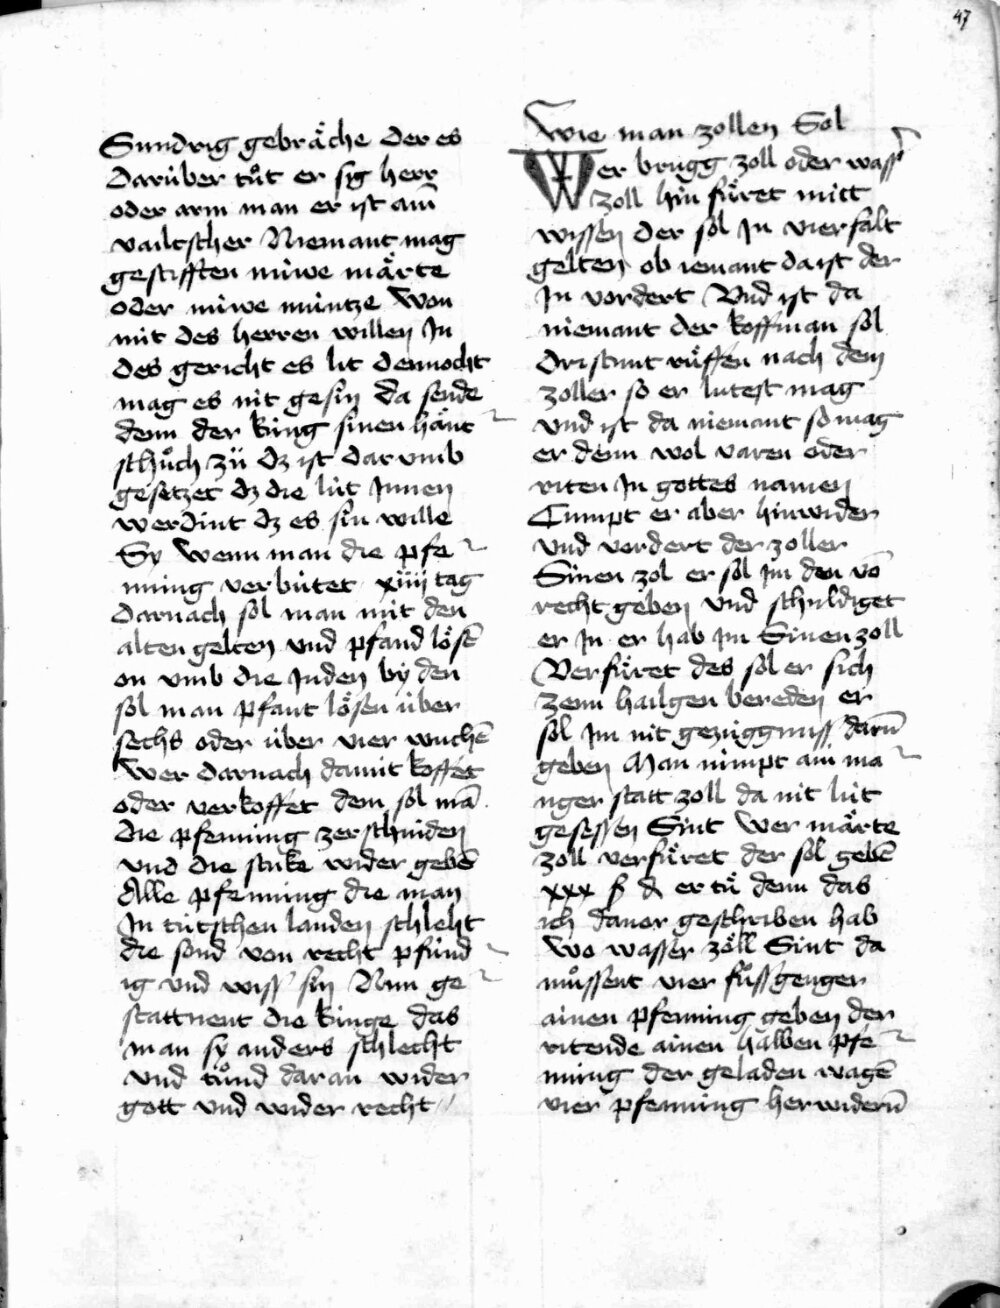 47
Sundrig gebräche der es
darüber tůt er sig herr
oder arm man er ist ain
vailtscher Niemant mag
gestifften niwe märte
oder niwe müntze Won
mit des herren willen In
des gericht es lit dennocht
mag es nit gesin da sende
denn der king sinen hänt
schůch zů dz ist dar vmb
gesetzet dz die lüt Innen
werdint dz es sin wille
Sy Wenn man die pfe
nning verbütet xiiii tag
darnach sol man mit den
alten gelten vnd pfand lösē
on vmb die Juden by den
sol man pfant lösen über
sechs oder über vier wuchē
Wer darnach damit koffet
oder verkoffet dem sol mā
die pfenning zerschniden
vnd die stuke wider gebē
Alle pfenning die man
In tütschen landen schleht
die sond von recht pfund
ig vnd wiss sin Nun ge
stattnent die kinge das
man sy anders schlecht
vnd tůnd daran wider
gott vnd wider recht
Wie man zollen Sol
Wer brugg zoll oder wass
zoll hin fůret mitt
wissen der sol In vierfalt
gelten ob iemant da ist der
In vordert Vnd ist da
niemant der koffman sol
dristunt růffen nach dem
zoller so er lutest mag
vnd ist da niemant so mag
er denn wol varen oder
riten In gottes namen
Cumpt er aber hinwider
vnd vordert der zoller
Sinen zol er sol im den vō
recht geben vnd schuldiget
er In er hab im Sinen zoll
Verfůret des sol er sich
zenn hailgen bereden er
sol Im nit gezüggnuss darū
geben Man nimpt ain ma
nger statt zoll da nit lüt
gesessen Sint Wer märte
zoll verfůret der sol gebē
xxx ß d er tů denn das
ich danor geschriben hab
Wo wasser zöll Sint da
můssent vier fůssgenger
ainen pfenning geben der
ritende ainen halben pfe
nning der geladen wagē
vier pfenning herwiderū